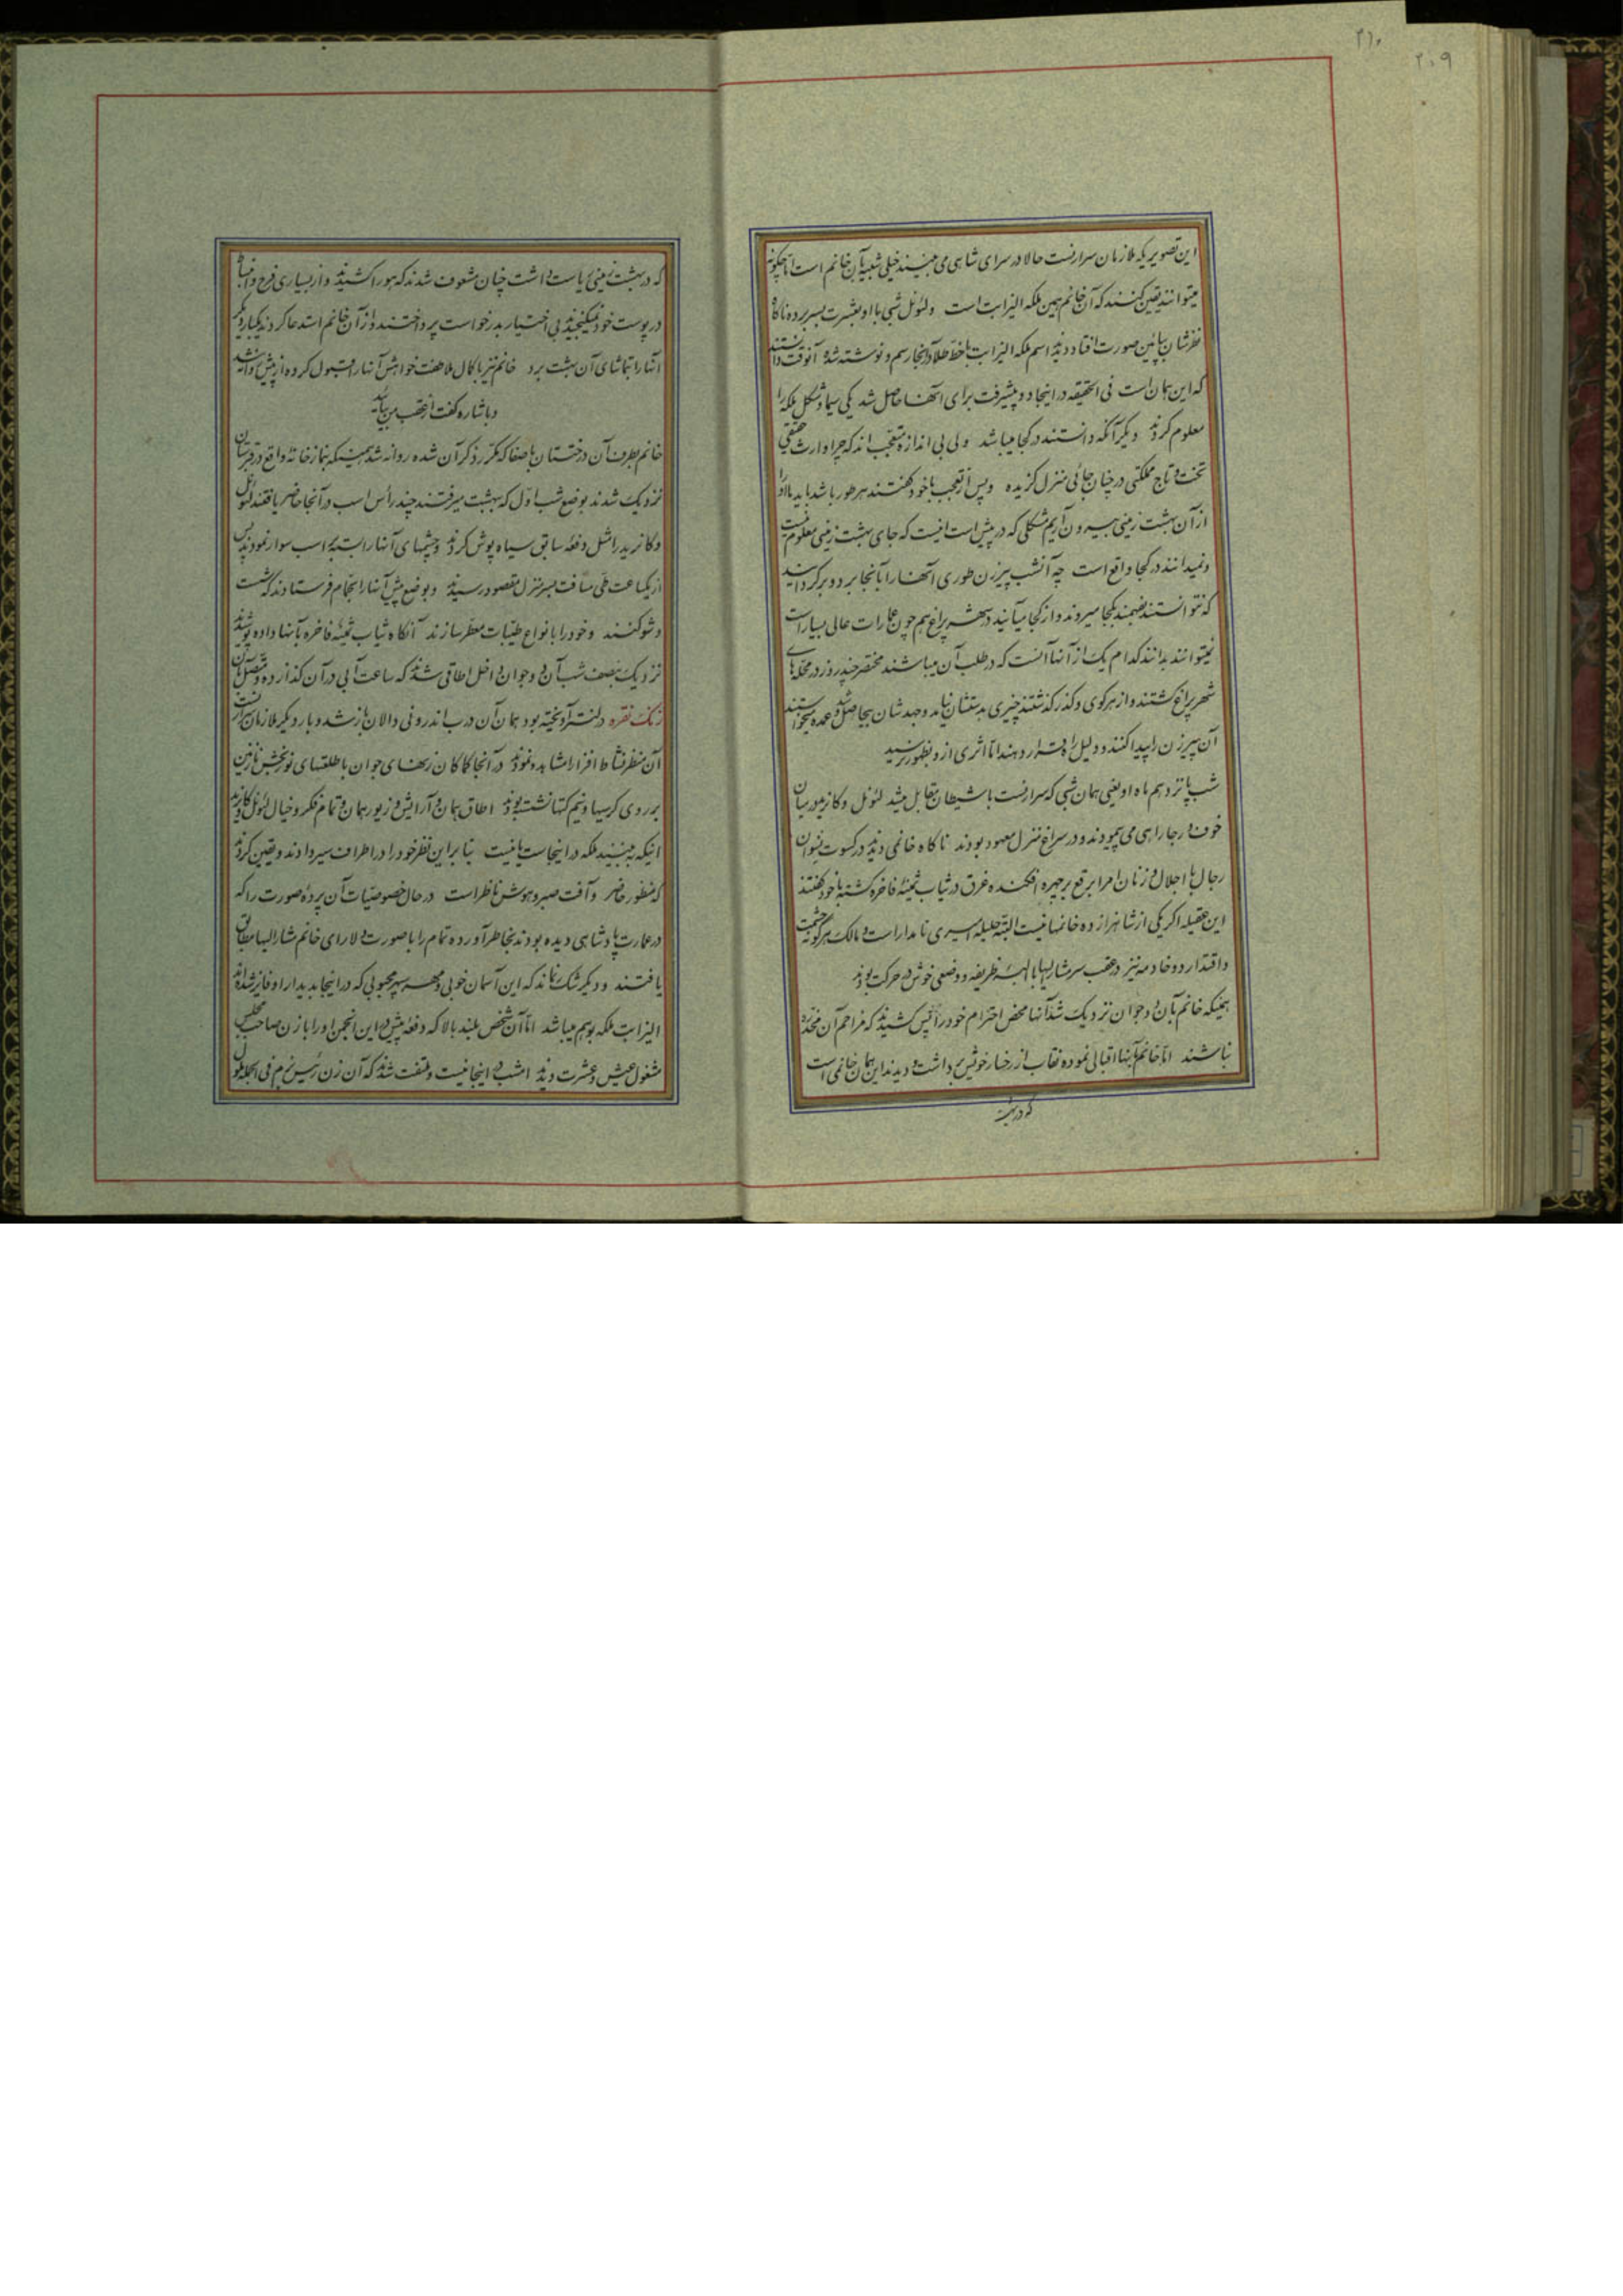 ۲۱۰
۲۰۹
این تصویریکه ملازمان سرارنست حالا در سرای شاهی می بینند خیلی شبیه بآن خانم است اما چگونه
میتوانند یقین کنند که آن خانم همین ملکه الیزابت است ولئونل شبی با او بعشرت بسر برده ناگاه
نظرشان بپائین صورت افتاد دیدند اسم ملکه الیزابت با خط طلا در آنجا رسم و نوشته شده آنوقت دانستند
که این همان است فی الحقیقه در اینجا دو پیشرفت برای آنها حاصل شد یکی سیما و شکل ملکه را
معلوم کردند دیگر آنکه دانستند در کجا میباشد ولی بی اندازه متعجب اند که چرا وارث حقیقی
تخت و تاج مملکتی در چنان جائی منزل گزیده و پس از تعجب با خود گفتند هر طور باشد باید ما او را
از آن بهشت زمینی بیرون آریم مشکلی که در پیش است اینست که جای بهشت زمینی معلوم نیست
و نمیدانند در کجا واقع است چه آنشب پیرزن طوری آنها را بآنجا برد و برگردانید
که نتوانستند بفهمند بکجا میروند و از کجا میآیند در شهر پراغ هم چون عمارات عالی بسیار است
نمیتوانند بدانند کدام یک از آنها آنست که در طلب آن میباشند مختصر چند روز در محله های
شهر پراغ گشتند و از هر کوی و گذر گذشتند چیزی بدستشان نیامد و جهدشان بیحاصل شد و عمده میخواستند
آن پیرزن را پیدا کنند و دلیل راه قرار دهند اما اثری از او بظهور نرسید
شب پانزدهم ماه او یعنی همان شبی که سرارنست با شیطان مقابل میشد لئونل و کانرید در میان
خوف و رجا راهی می پیمودند و در سراغ منزل معهود بودند ناگاه خانمی دیدند در کسوت نسوان
رجال با اجلال و زنان امرا برقع بر چهره افکنده غرق در ثیاب ثمینه فاخره گشته با خود گفتند
این عقیله اگر یکی از شاهزاده خانمها نیست البته حلیله امیری نامدار است و مالک هر گونه حشمت
و اقتدار دو خادمه نیز در عقب سر مشارالیها با البسه ظریفه و وضعی خوش در حرکت بودند
همینکه خانم بآن دو جوان نزدیک شد آنها محض احترام خود را پس کشیدند که مزاحم آن مخدره
نباشند اما خانم بآنها اقبالی نموده نقاب از رخسار خویش برداشت و دیدند این همان خانمی است
که در بهشت
که در بهشت زمینی ریاست داشت چنان مشعوف شدند که هورا کشیدند و از بسیاری فرح و انبساط
در پوست خود نمیگنجیدند بی اختیار بدرخواست پرداختند و از آن خانم استدعا کردند یکبار دیگر
آنها را بتماشای آن بهشت برد خانم نیز با کمال ملاطفت خواهش آنها را قبول کرده از پیش روانه شد
و باشاره گفت از عقب من بیائید
خانم بطرف آن درختستان باصفا که مکرر ذکر آن شده روانه شد همینکه بنمازخانه واقع در قبرستان
نزدیک شدند بوضع شب اول که ببهشت میرفتند چند رأس اسب در آنجا حاضر یافتند لئونل
و کانرید را مثل دفعه سابق سیاه پوش کردند و چشمهای آنها را بسته بر اسب سوار نمودند پس
از یکساعت طی مسافت بسرمنزل مقصود رسیدند و بوضع پیش آنها را بحمام فرستادند که شست
و شو کنند و خود را بانواع طیبات معطر سازند آنگاه ثیاب ثمینه فاخره بآنها داده پوشیدند
نزدیک بنصف شب آن دو جوان داخل اطاقی شدند که ساعت آبی در آن گذارده و متصل بآن
زنگ نقره دلنت آویخته بود همان آن درب اندرونی دالان باز شد و بار دیگر ملازمان سرارنست
آن منظر نشاط افزا را مشاهده نمودند در آنجا کماکان زنهای جوان با طلعتهای نوربخش نازنین
بر روی کرسیها و نیم کتها نشسته بودند اطاق همان و آرایش و زیور همان و تمام فکر و خیال لئونل و کانرید
اینکه ببینند ملکه در اینجاست یا نیست بنا براین نظر خود را در اطراف سیر دادند و یقین کردند
که منظور حاضر و آفت صبر و هوش ناظر است در حال خصوصیات آن پرده صورت را که
در عمارت پادشاهی دیده بودند بخاطر آورده تمام را با صورت دلارای خانم مشارالیها مطابق
یافتند و دیگر شک نماند که این آسمان خوبی و مهر سپهر محبوبی که در اینجا بدیدار او فایز شده اند
الیزابت ملکه بوهم میباشد اما آن شخص بلند بالا که دفعه پیش در این انجمن او را با زن صاحب مجلس
مشغول عیش و عشرت دیدند امشب در اینجا نیست و ملتفت شدند که آن زن رئیس بزم فی الجمله ملول